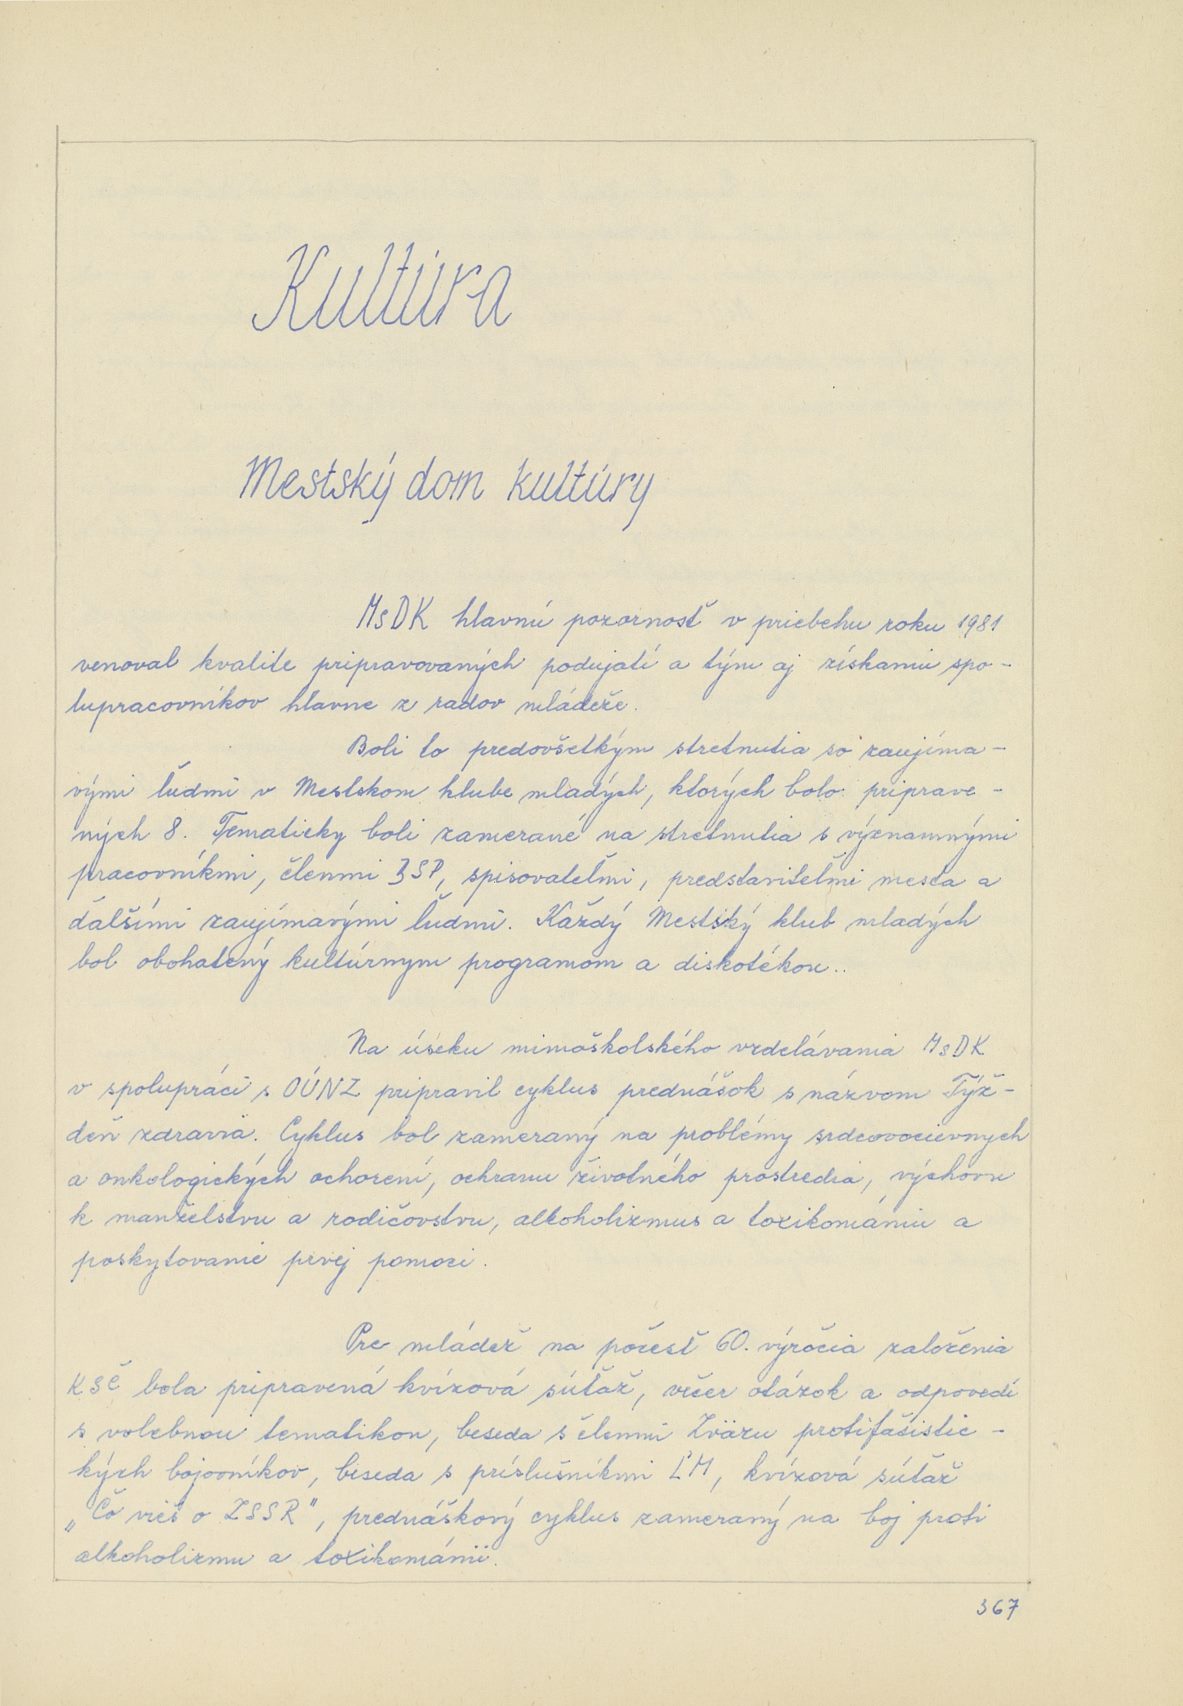 Kultúra
Mestský dom kultúry
MsDK hlavnú pozornosť v priebehu roku 1981
venoval kvalite pripravovaných podujatí a tým aj získaniu spo-
lupracovníkov hlavne z radov mládeže.
Boli to predovšetkým stretnutia so zaujíma-
vými ľuďmi v Mestskom klube mladých, ktorých bolo priprave-
ných 8. Tematicky boli zamerané na stretnutia s významnými
pracovníkmi, členmi BSP, spisovateľmi, predstaviteľmi mesta a
ďalšími zaujímavými ľuďmi. Každý Mestský klub mladých
bol obohatený kultúrnym programom a diskotékou..
Na úseku mimoškolského vzdelávania MsDK
v spolupráci s OÚNZ pripravil cyklus prednášok s názvom Týž-
deň zdravia. Cyklus bol zameraný na problémy srdcovocievnych
a onkologických ochorení, ochranu životného prostredia, výchovu
k manželstvu a rodičovstvu, alkoholizmus a toxikomániu a
poskytovanie prvej pomoci.
Pre mládež na počesť 60. výročia založenia
KSČ bola pripravená kvízová súťaž, večer otázok a odpovedí
s volebnou tematikou, beseda s členmi Zväzu protifašistic-
kých bojovníkov, beseda s príslušníkmi ĽM, kvízová súťaž
„Čo vieš o ZSSR", prednáškový cyklus zameraný na boj proti
alkoholizmu a toxikománii.
367